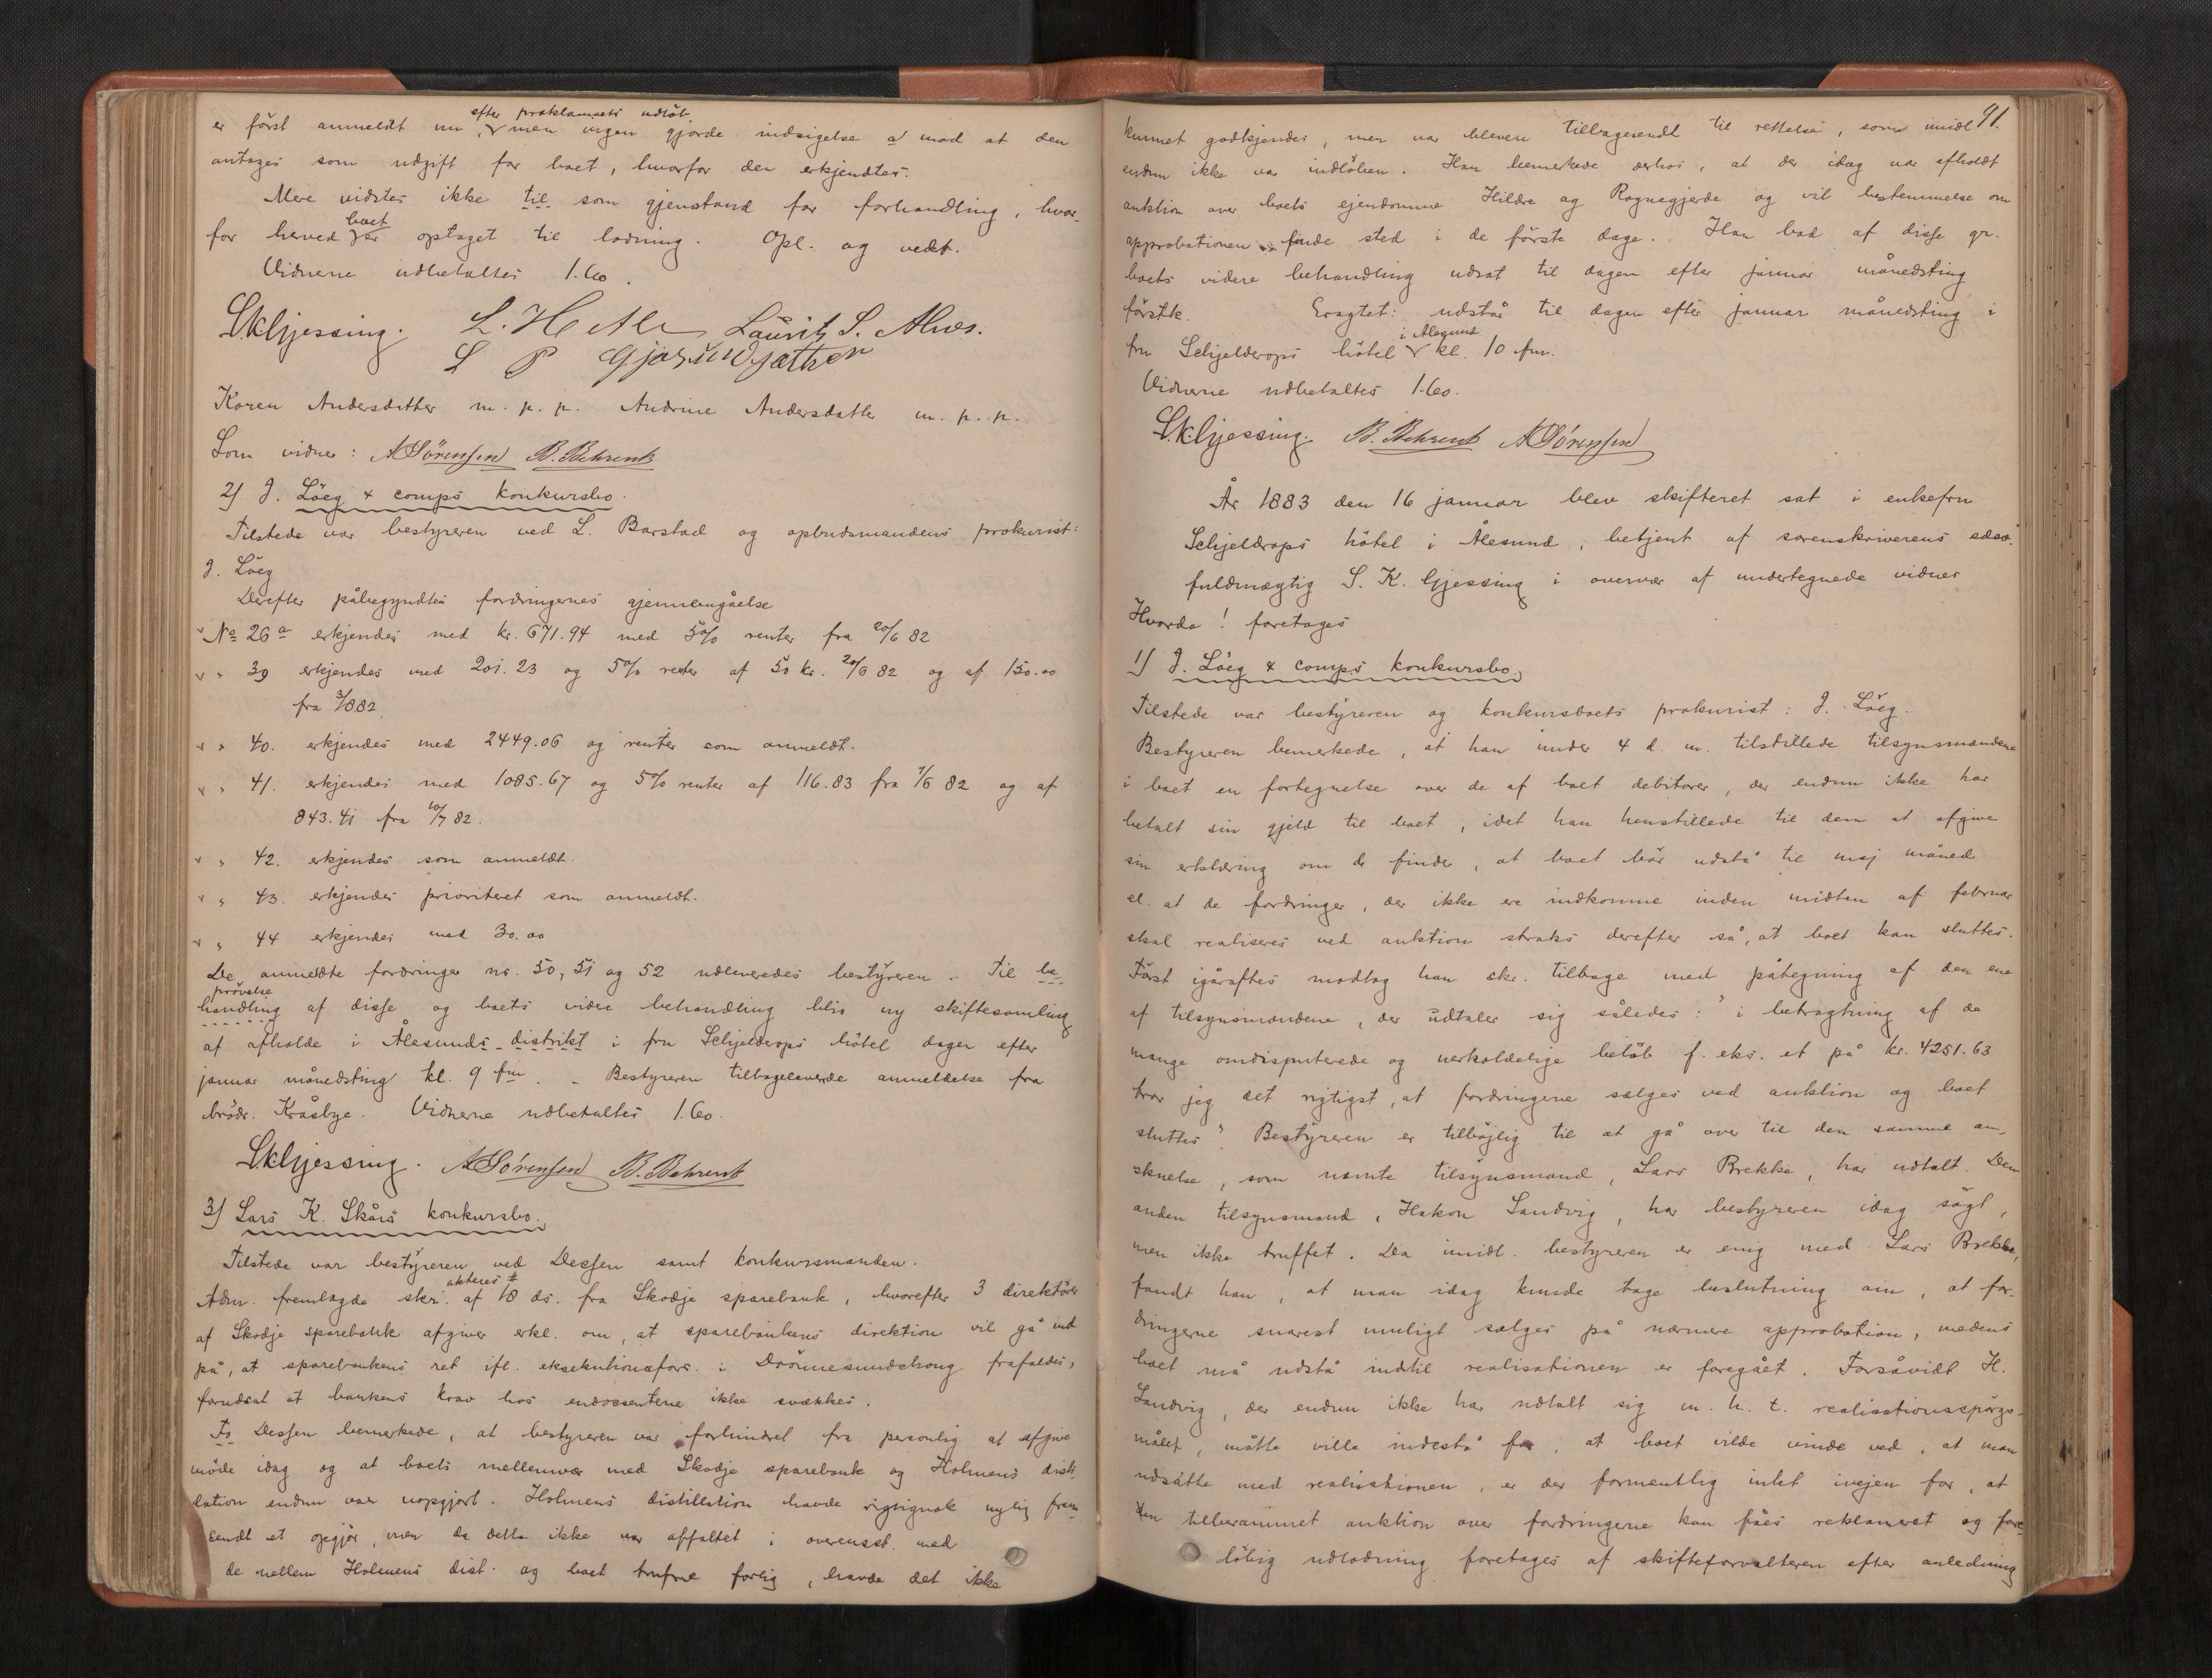 efter proklamaets udløb
er först anmeldt nu, men ingen gjorde indsigelse mod at den
antages som udgift for boet, hvorfor den erkjendtes.
Mere vidstes ikke til som gjenstand for forhandling, hvor-
boet
for herved er optaget til lodning. Opl. og vedt.
Vidnerne udbetaltes 1.60.
SKGjessing. Laurits S. Alnes.
L P Gjøsundsæther
Karen Andersdatter m. p. p. Andrine Andersdatter m. p. p.
Som vidner: A Sörensen B. Behrent
2/ J. Löeg & comps konkursbo.
Tilstede var bestyreren ved L. Barstad og opbudsmandens prokurist:
J. Löeg
Derefter påbegyndtes fordringernes gjennemgåelse
No 26a erkjendes med kr. 671.94 med 5% renter fra 20/6 82
" 39 erkjendes med 201.23 og 5% renter af 50 kr. 20/6 82 og af 150.00
fra 3/8 82
" 40. erkjendes med 2449.06 og renter som anmeldt.
" 41. erkjendes med 1085.67 og 5% renter af 116.83 fra 1/6 82 og af
843.41 fra 10/7 82.
" 42. erkjendes som anmeldt.
" 43. erkjendes prioriteret som anmeldt.
" 44 erkjendes med 30.00
De anmeldte fordringer no. 50, 51 og 52 udleveredes bestyreren. - Til be-
prövelse
handling af disse og boets videre behandling blir ny skiftesamling
at afholde i Ålesunds distrikt i fru Schjelderops hôtel dagen efter
januar månedsting kl. 9 fm. - Bestyreren tilbageleverede anmeldelse fra
brödr. Kråsbye. Vidnerne udbetaltes 1.60.
SKGjessing. A Sörensen B. Behrent
3/ Lars K. Skårs konkursbo.
Tilstede var bestyreren ved Dessen samt konkursmanden.
akteres #
Adm. fremlagde skr. af 18 ds. fra Skodje sparebank, hvorefter 3 direktörer
af Skodje sparebank afgiver erkl. om, at sparebankens direktion vil gå ind
på, at sparebankens ret ifl. eksekutionsforr. i frafaldes,
forudsat at bankens krav hos endossenterne ikke svækkes.
Dessen bemerkede, at bestyreren var forhindret fra personlig at afgive
möde idag og at boets mellemvær med Skodje sparebank og Holmens disti-
lation endnu var uopgjort. Holmens distillation havde rigtignok nylig frem-
sendt et opgjör, men da dette ikke var affattet i overensst. med
de mellem Holmens dist. og boet trufne forlig, havde det ikke
91.
kunnet godkjendes, men var bleven tilbagesendt til rettelse, som imidl.
endnu ikke var indlöben. Han bemerkede derhos, at der idag var afholdt
auktion over boets ejendomme Hildre og Rognegjerde og vil bestemmelse om
approbationen finde sted i de förste dage. Han bad af disse gr.
boets videre behandling udsat til dagen efter januar månedsting
förstk. Eragtet: udstår til dagen efter januar månedsting i
i Ålesund
fru Schjelderops hôtel kl. 10 fm.
Vidnerne udbetaltes 1.60.
SKGjessing. B. Behrent A Sörensen
År 1883 den 16 januar blev skifteret sat i enkefru
Schjelderops hôtel i Ålesund, betjent af sorenskriverens edsv.
fuldmægtig S. K. Gjessing i overvær af undertegnede vidner
Hvorda! foretoges
1/ J. Löeg & comps konkursbo.
Tilstede var bestyreren og konkursboets prokurist: J. Löeg.
Bestyreren bemerkede, at han under 4 d. m. tilstillede tilsynsmændene
i boet en fortegnelse over de af boet debitorer, der endnu ikke har
betalt sin gjeld til boet, idet han henstillede til dem at afgive
sin erklæring om de finder, at boet bör udstå til maj måned
el. at de fordringer, der ikke ere indkomne inden midten af februar
skal realiseres ved auktion straks derefter så, at boet kan sluttes.
Först igåraftes modtog han skr. tilbage med påtegning af den ene
af tilsynsmændene, der udtaler sig således: "i betragtning af de
mange omdisputerede og uerholdelige belöb f. eks. et på kr. 4251.63
tror jeg det rigtigst, at fordringerne sælges ved auktion og boet
sluttes". Bestyreren er tilböjlig til at gå over til den samme an-
skuelse, som nævnte tilsynsmand, Lars Brekke, har udtalt. Den
anden tilsynsmand, Hakon Sandvig, har bestyreren idag sögt,
men ikke truffet. Da imidl. bestyreren er enig med Lars Brekke,
fandt han, at man idag kunde tage beslutning om, at for-
dringerne snarest muligt sælges på nærmere approbation, medens
boet må udstå indtil realisationen er foregået. Forsåvidt H.
Sandvig, der endnu ikke har udtalt sig m. h. t. realisationsspörgs-
målet, måtte ville indestå for, at boet vilde vinde ved, at man
udsatte med realisationen, er der formentlig intet ivejen for, at
den tilberammet auktion over fordringerne kan fåes reklameret og fore-
löbig udlodning foretages af skifteforvalteren efter anledning